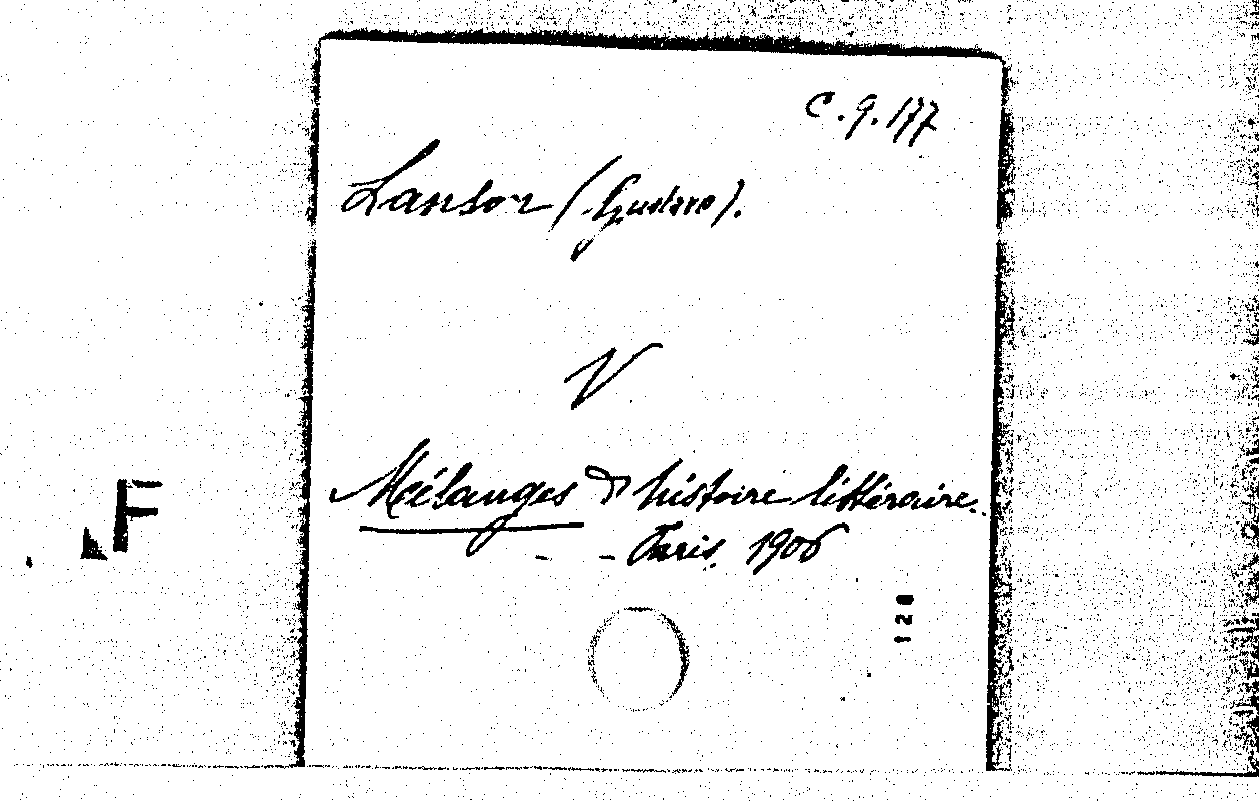 C.9.177
Lanson (Gustave).
V
Mélanges d'histoire littéraire.
- - Paris, 1906
F
128